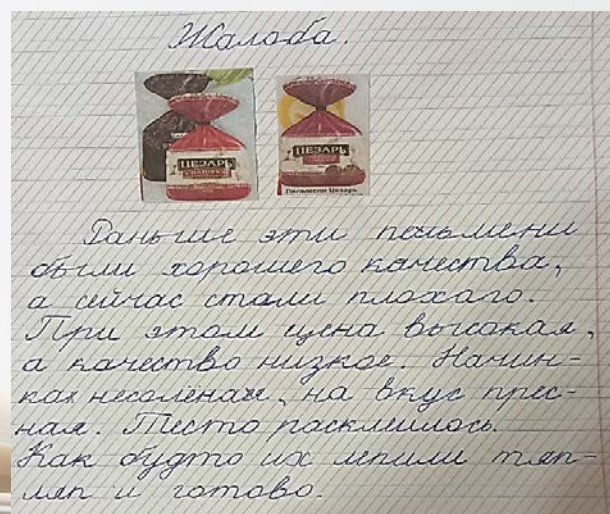 Жалоба.
ЦЕЗАРЬ
ЦЕЗАРЬ
Пельмени Цезарь
Раньше эти пельмени
были хорошего качества,
а сейчас стали плохого.
При этом цена высокая,
а качество низкое. Начин-
ка несоленая, на вкус прес-
ная. Тесто расклеилось.
Как будто их лепили тяп-
ляп и готово.